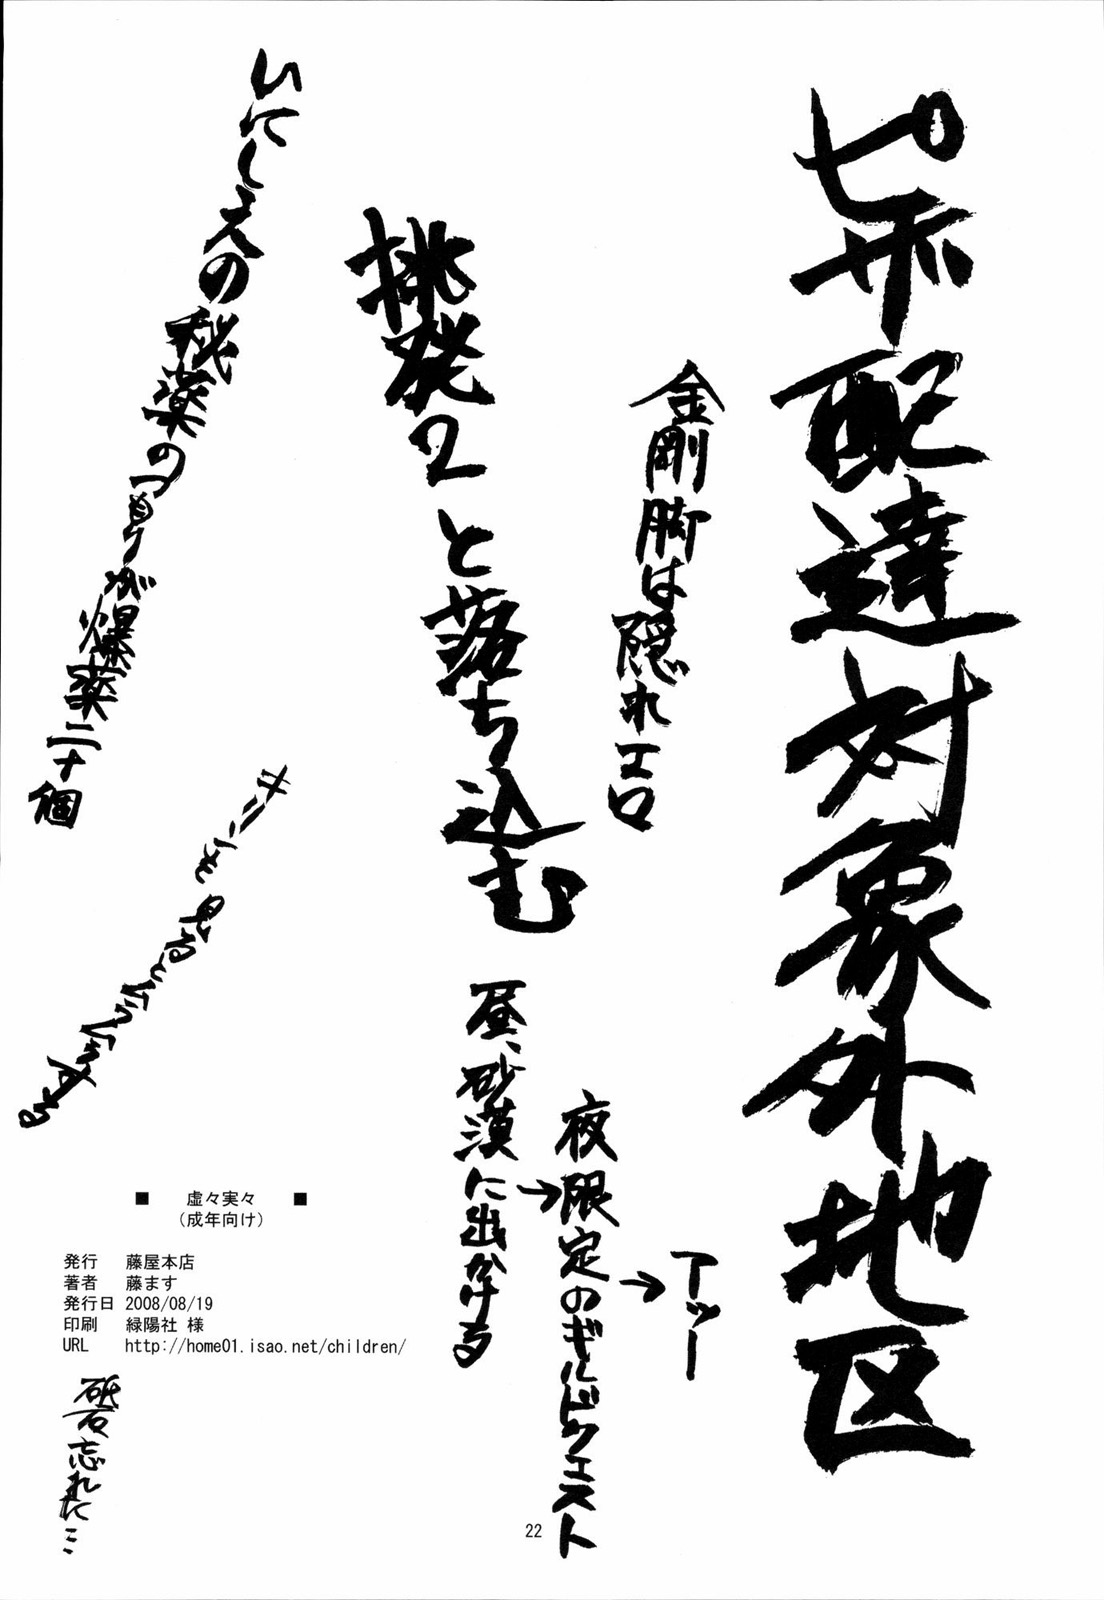 ピザ配達対象外地区
金剛脚は隠れエロ
挑発2と落ち込む
昼、砂漠に出かける
→夜限定のギルドクエスト
→アッー
いにしえの秘薬のつもりが爆薬二十個
キリンを見ると
■ 虚々実々 ■
(成年向け)
発行 藤屋本店
著者 藤ます
発行日 2008/08/19
印刷 緑陽社 様
URL http://home01.isao.net/children/
砥石忘れた…
22